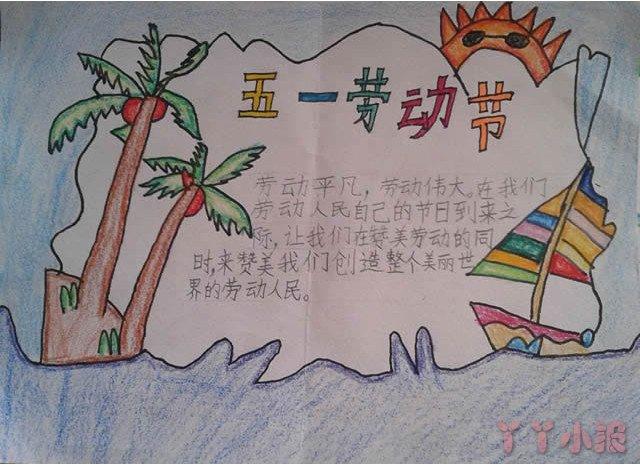 五一劳动节
劳动平凡，劳动伟大。在我们
劳动人民自己的节日到来之
际，让我们在赞美劳动的同
时，来赞美我们创造整个美丽世
界的劳动人民。
丫丫小报